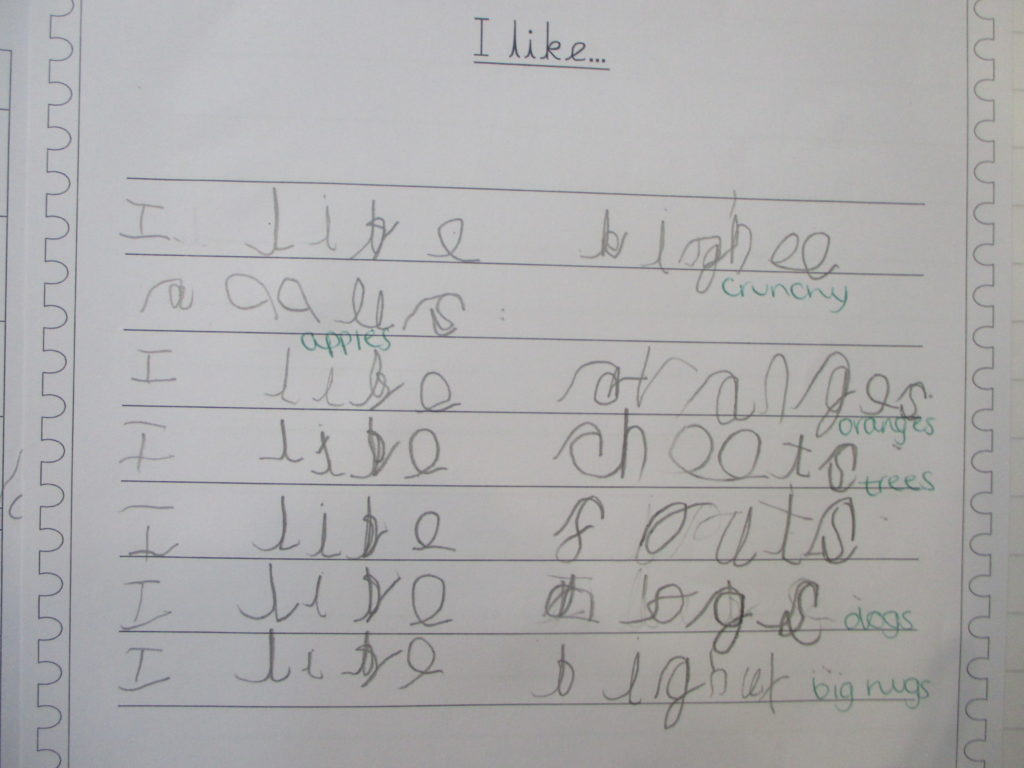 I like...
I like bighee
crunchy
aqales
apples
I like oranges
oranges
I like cheets
trees
I like
I like dogs
dogs
I like bighut
big rugs